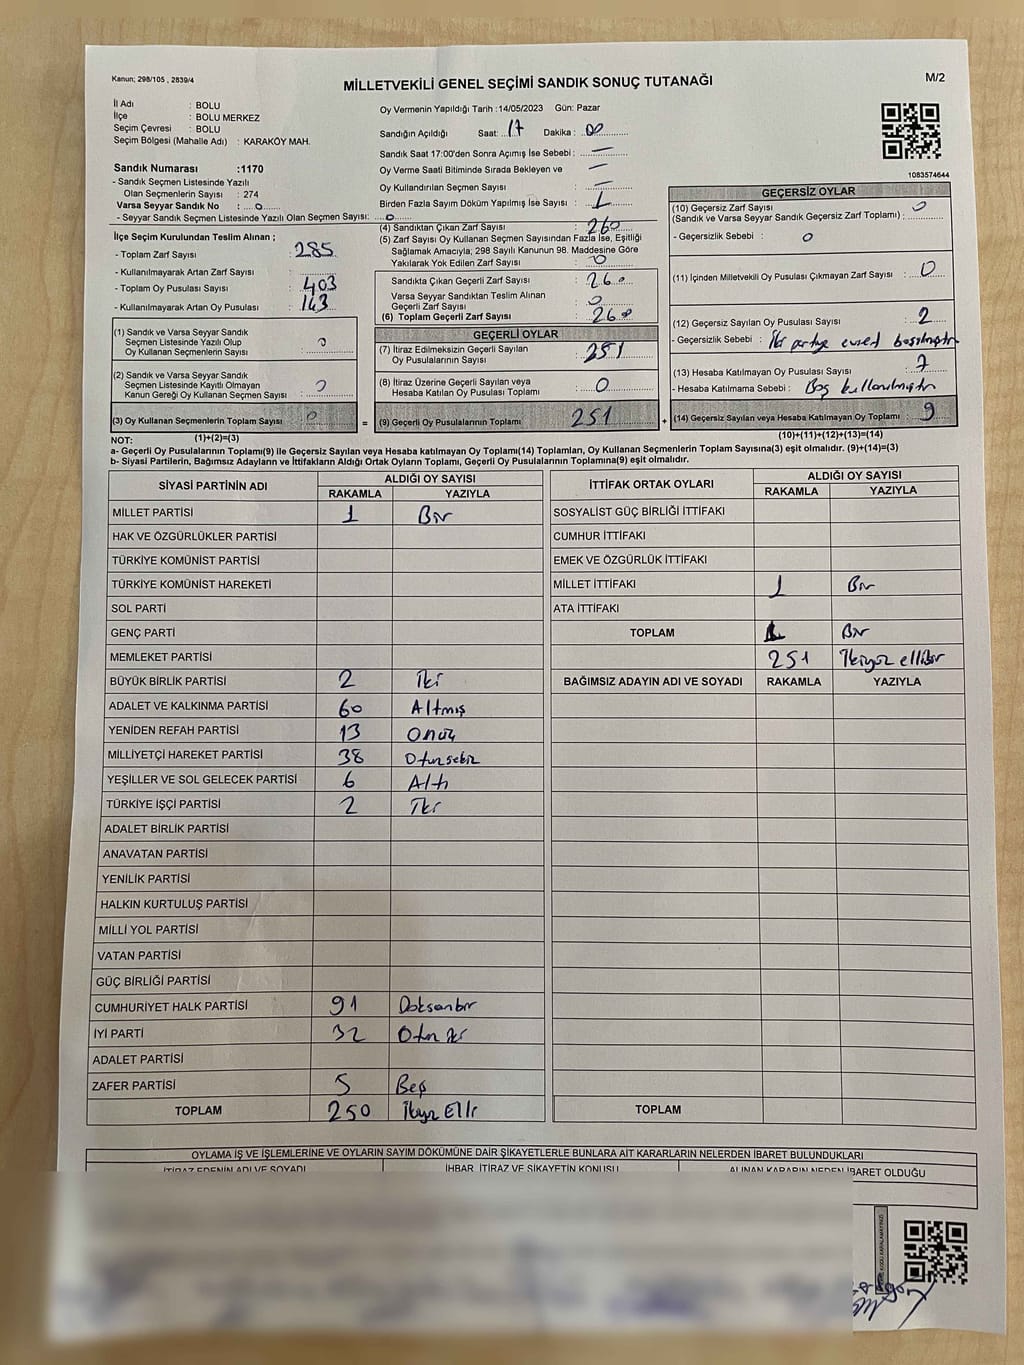 Kanun; 298/105 , 2839/4
MİLLETVEKİLİ GENEL SEÇİMİ SANDIK SONUÇ TUTANAĞI
M/2
İl Adı : BOLU
İlçe : BOLU MERKEZ
Seçim Çevresi : BOLU
Seçim Bölgesi (Mahalle Adı) : KARAKÖY MAH.
Sandık Numarası :1170
- Sandık Seçmen Listesinde Yazılı
Olan Seçmenlerin Sayısı : 274
Varsa Seyyar Sandık No : 0
- Seyyar Sandık Seçmen Listesinde Yazılı Olan Seçmen Sayısı: 0
Oy Vermenin Yapıldığı Tarih :14/05/2023 Gün: Pazar
Sandığın Açıldığı Saat: 17 Dakika : 00
Sandık Saat 17:00'den Sonra Açımış İse Sebebi : —
Oy Verme Saati Bitiminde Sırada Bekleyen ve —
Oy Kullandırılan Seçmen Sayısı —
Birden Fazla Sayım Döküm Yapılmış İse Sayısı : 1
1083574644
İlçe Seçim Kurulundan Teslim Alınan ;
- Toplam Zarf Sayısı : 285
- Kullanılmayarak Artan Zarf Sayısı :
- Toplam Oy Pusulası Sayısı : 403
- Kullanılmayarak Artan Oy Pusulası : 143
(1) Sandık ve Varsa Seyyar Sandık
Seçmen Listesinde Yazılı Olup
Oy Kullanan Seçmenlerin Sayısı : 0
(2) Sandık ve Varsa Seyyar Sandık
Seçmen Listesinde Kayıtlı Olmayan
Kanun Gereği Oy Kullanan Seçmen Sayısı : 0
(3) Oy Kullanan Seçmenlerin Toplam Sayısı : 0
(1)+(2)=(3)
(4) Sandıktan Çıkan Zarf Sayısı : 260
(5) Zarf Sayısı Oy Kullanan Seçmen Sayısından Fazla İse, Eşitliği
Sağlamak Amacıyla; 298 Sayılı Kanunun 98. Maddesine Göre
Yakılarak Yok Edilen Zarf Sayısı : 0
Sandıkta Çıkan Geçerli Zarf Sayısı : 260
Varsa Seyyar Sandıktan Teslim Alınan
Geçerli Zarf Sayısı : 0
(6) Toplam Geçerli Zarf Sayısı : 260
GEÇERLİ OYLAR
(7) İtiraz Edilmeksizin Geçerli Sayılan
Oy Pusulalarının Sayısı : 251
(8) İtiraz Üzerine Geçerli Sayılan veya
Hesaba Katılan Oy Pusulası Toplamı : 0
=
(9) Geçerli Oy Pusulalarının Toplamı : 251
+
GEÇERSİZ OYLAR
(10) Geçersiz Zarf Sayısı
(Sandık ve Varsa Seyyar Sandık Geçersiz Zarf Toplamı) : 0
- Geçersizlik Sebebi : 0
(11) İçinden Milletvekili Oy Pusulası Çıkmayan Zarf Sayısı : 0
(12) Geçersiz Sayılan Oy Pusulası Sayısı : 2
- Geçersizlik Sebebi : İki partiye evet basılmıştır
(13) Hesaba Katılmayan Oy Pusulası Sayısı : 7
- Hesaba Katılmama Sebebi : Boş kullanılmıştır
(14) Geçersiz Sayılan veya Hesaba Katılmayan Oy Toplamı : 9
(10)+(11)+(12)+(13)=(14)
NOT:
a- Geçerli Oy Pusulalarının Toplamı(9) ile Geçersiz Sayılan veya Hesaba katılmayan Oy Toplamı(14) Toplamları, Oy Kullanan Seçmenlerin Toplam Sayısına(3) eşit olmalıdır. (9)+(14)=(3)
b- Siyasi Partilerin, Bağımsız Adayların ve İttifakların Aldığı Ortak Oyların Toplamı, Geçerli Oy Pusulalarının Toplamına(9) eşit olmalıdır.
SİYASİ PARTİNİN ADI ALDIĞI OY SAYISI
RAKAMLA YAZIYLA
MİLLET PARTİSİ 1 Bir
HAK VE ÖZGÜRLÜKLER PARTİSİ
TÜRKİYE KOMÜNİST PARTİSİ
TÜRKİYE KOMÜNİST HAREKETİ
SOL PARTİ
GENÇ PARTİ
MEMLEKET PARTİSİ
BÜYÜK BİRLİK PARTİSİ 2 İki
ADALET VE KALKINMA PARTİSİ 60 Altmış
YENİDEN REFAH PARTİSİ 13 Onüç
MİLLİYETÇİ HAREKET PARTİSİ 38 Otuzsekiz
YEŞİLLER VE SOL GELECEK PARTİSİ 6 Altı
TÜRKİYE İŞÇİ PARTİSİ 2 İki
ADALET BİRLİK PARTİSİ
ANAVATAN PARTİSİ
YENİLİK PARTİSİ
HALKIN KURTULUŞ PARTİSİ
MİLLİ YOL PARTİSİ
VATAN PARTİSİ
GÜÇ BİRLİĞİ PARTİSİ
CUMHURİYET HALK PARTİSİ 91 Doksanbir
İYİ PARTİ 32 Otuz iki
ADALET PARTİSİ
ZAFER PARTİSİ 5 Beş
TOPLAM 250 İkiyüz Elli
İTTİFAK ORTAK OYLARI ALDIĞI OY SAYISI
RAKAMLA YAZIYLA
SOSYALİST GÜÇ BİRLİĞİ İTTİFAKI
CUMHUR İTTİFAKI
EMEK VE ÖZGÜRLÜK İTTİFAKI
MİLLET İTTİFAKI 1 Bir
ATA İTTİFAKI
TOPLAM 1 Bir
251 İkiyüz ellibir
BAĞIMSIZ ADAYIN ADI VE SOYADI RAKAMLA YAZIYLA
TOPLAM
OYLAMA İŞ VE İŞLEMLERİNE VE OYLARIN SAYIM DÖKÜMÜNE DAİR ŞİKAYETLERLE BUNLARA AİT KARARLARIN NELERDEN İBARET BULUNDUKLARI
İTİRAZ EDENİN ADI VE SOYADI İHBAR, İTİRAZ VE ŞİKAYETİN KONUSU ALINAN KARARIN NEDEN İBARET OLDUĞU